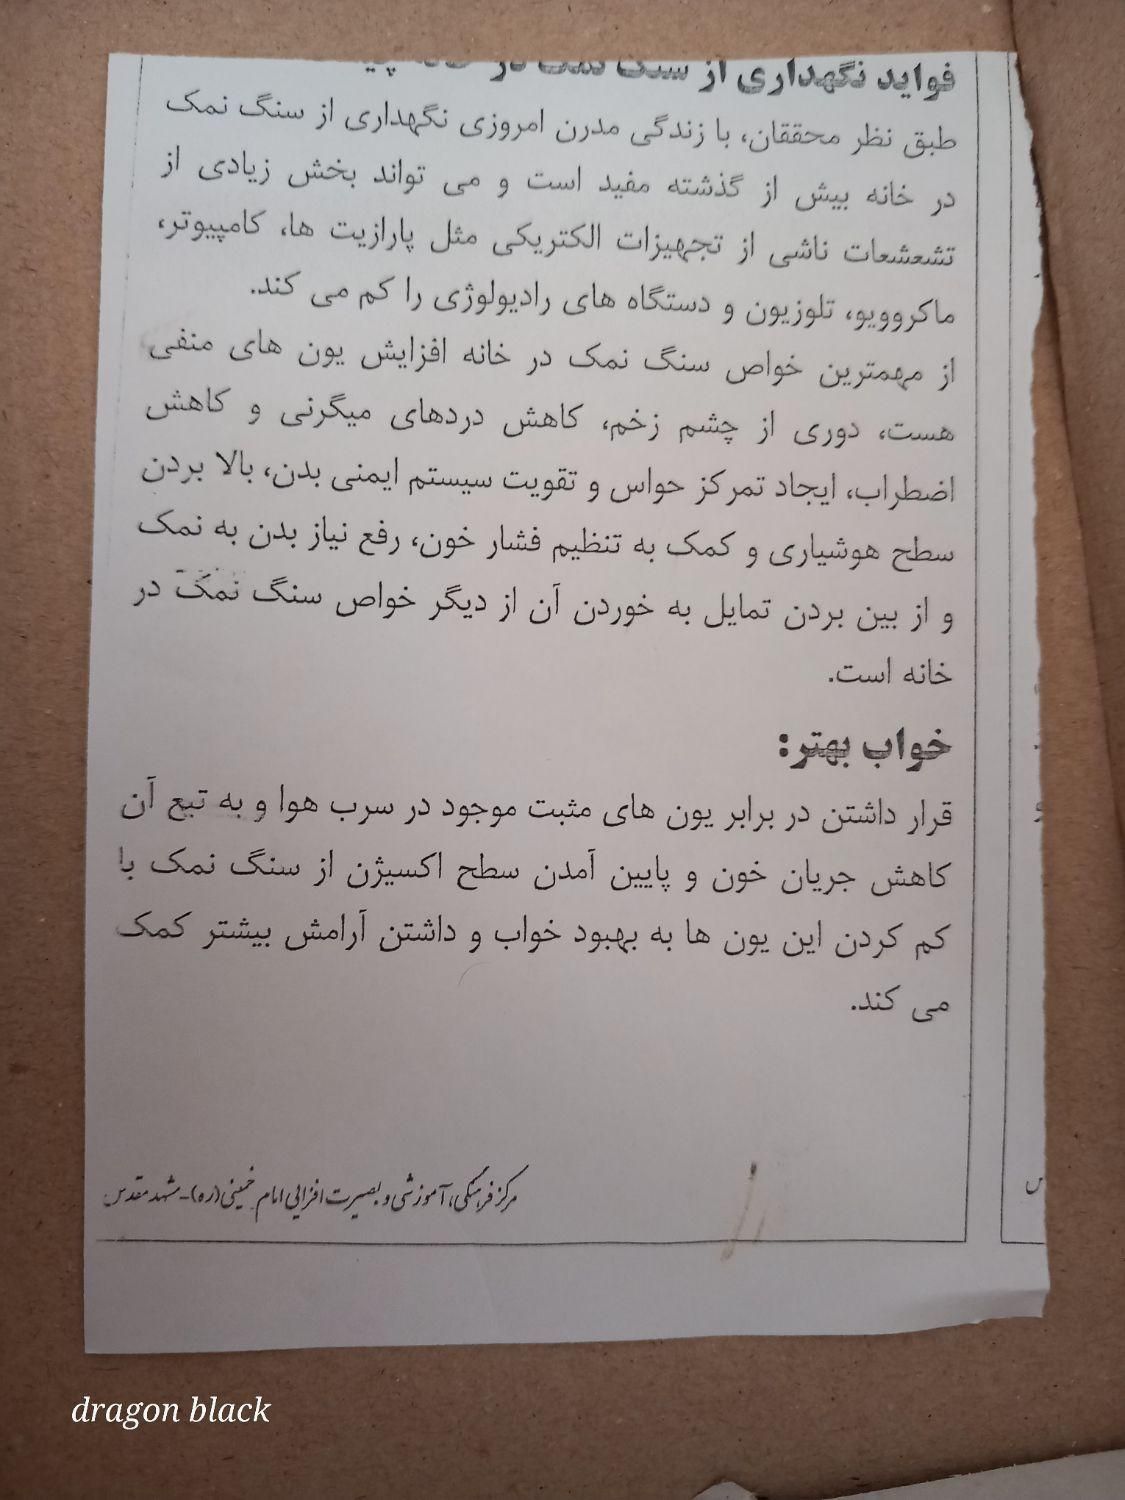 فواید نگهداری از سنگ نمک در خانه
طبق نظر محققان، با زندگی مدرن امروزی نگهداری از سنگ نمک
در خانه بیش از گذشته مفید است و می تواند بخش زیادی از
تشعشعات ناشی از تجهیزات الکتریکی مثل پارازیت ها، کامپیوتر،
ماکروویو، تلوزیون و دستگاه های رادیولوژی را کم می کند.
از مهمترین خواص سنگ نمک در خانه افزایش یون های منفی
هست، دوری از چشم زخم، کاهش دردهای میگرنی و کاهش
اضطراب، ایجاد تمرکز حواس و تقویت سیستم ایمنی بدن، بالا بردن
سطح هوشیاری و کمک به تنظیم فشار خون، رفع نیاز بدن به نمک
و از بین بردن تمایل به خوردن آن از دیگر خواص سنگ نمک در
خانه است.
خواب بهتر:
قرار داشتن در برابر یون های مثبت موجود در سرب هوا و به تبع آن
کاهش جریان خون و پایین آمدن سطح اکسیژن از سنگ نمک با
کم کردن این یون ها به بهبود خواب و داشتن آرامش بیشتر کمک
می کند.
مرکز فرهنگی، آموزشی و بصیرت افزایی امام خمینی(ره)-مشهد مقدس
dragon black